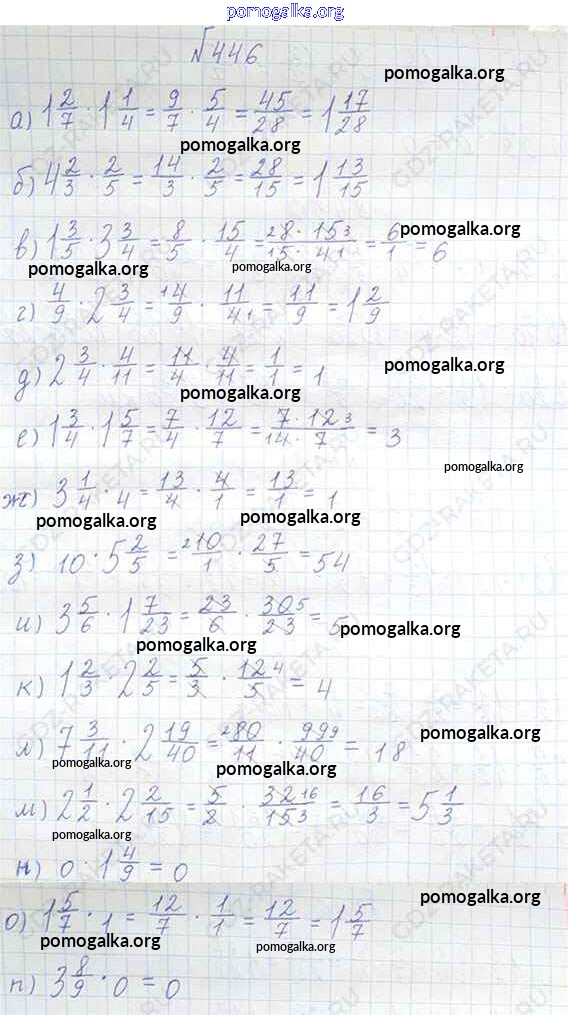 pomogalka.org
№446
pomogalka.org
а) 1 2/7 · 1 1/4 = 9/7 · 5/4 = 45/28 = 1 17/28
pomogalka.org
б) 4 2/3 · 2/5 = 14/3 · 2/5 = 28/15 = 1 13/15
в) 1 3/5 · 3 3/4 = 8/5 · 15/4 = 28 · 153/15 · 41 = 6/1 = 6
pomogalka.org
pomogalka.org pomogalka.org
г) 4/9 · 2 3/4 = 14/9 · 11/41 = 11/9 = 1 2/9
д) 2 3/4 · 4/11 = 11/4 · 4/11 = 1/1 = 1
pomogalka.org
pomogalka.org
е) 1 3/4 · 1 5/7 = 7/4 · 12/7 = 7 · 123/14 · 7 = 3
pomogalka.org
ж) 3 1/4 · 4 = 13/4 · 4/1 = 13/1 = 1
pomogalka.org pomogalka.org
з) 10 · 5 2/5 = 210/1 · 27/5 = 54
и) 3 5/6 · 1 7/23 = 23/6 · 305/23 = 5
pomogalka.org
pomogalka.org
к) 1 2/3 · 2 2/5 = 5/3 · 124/5 = 4
л) 7 3/11 · 2 19/40 = 280/11 · 999/40 = 18
pomogalka.org
pomogalka.org
pomogalka.org
м) 2 1/2 · 2 2/15 = 5/2 · 3216/153 = 16/3 = 5 1/3
pomogalka.org
н) 0 · 1 4/9 = 0
pomogalka.org
о) 1 5/7 · 1 = 12/7 · 1/1 = 12/7 = 1 5/7
pomogalka.org pomogalka.org
п) 3 8/9 · 0 = 0
pomogalka.org
GDZ-RAKETA.RU